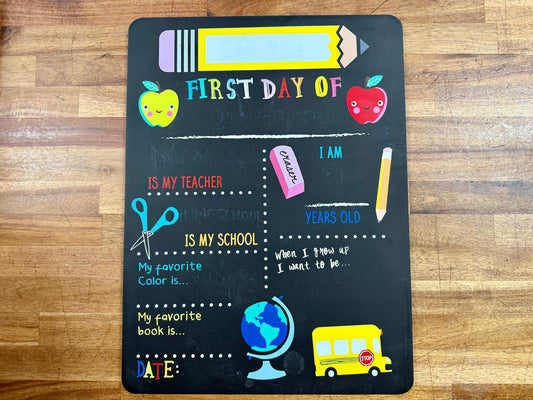 FIRST DAY OF
eraser
I AM
IS MY TEACHER
YEARS OLD
IS MY SCHOOL
When I grow up
I want to be...
My favorite
Color is...
My favorite
book is...
STOP
DATE: